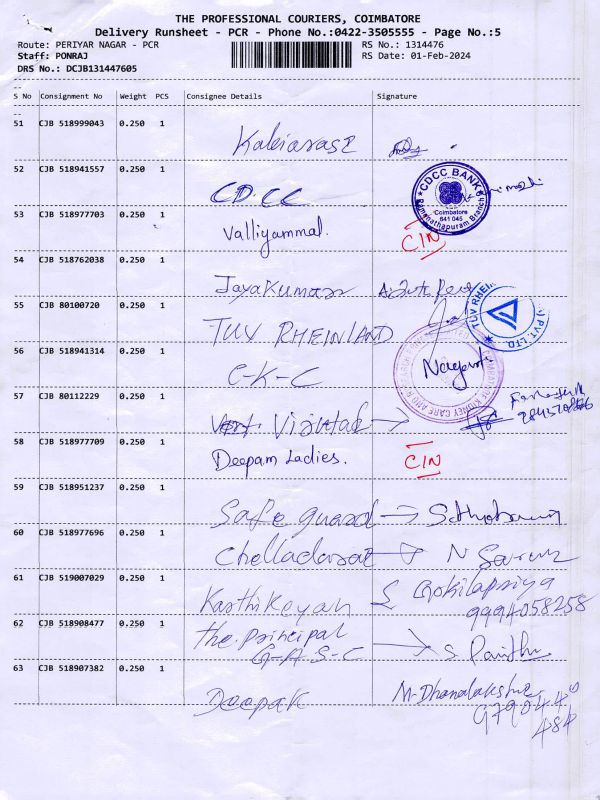 THE PROFESSIONAL COURIERS, COIMBATORE
Delivery Runsheet - PCR - Phone No.:0422-3505555 - Page No.:5
Route: PERIYAR NAGAR - PCR RS No.: 1314476
Staff: PONRAJ RS Date: 01-Feb-2024
DRS No.: DCJB131447605
--
S No Consignment No Weight PCS Consignee Details Signature
--
51 CJB 518999043 0.250 1
Kaleiarasi
52 CJB 518941557 0.250 1
CDCC
CDCC BANK
Coimbatore
641 045
Ramanathapuram Branch
53 CJB 518977703 0.250 1
Valliyammal. CIN
54 CJB 518762038 0.250 1
Jayakumar
55 CJB 80100720 0.250 1
TUV RHEINLAND
TUV RHEIN PVT. LTD.
56 CJB 518941314 0.250 1
C-K-C
57 CJB 80112229 0.250 1
58 CJB 518977709 0.250 1
Deepam Ladies. CIN
59 CJB 518951237 0.250 1
Safe guard
60 CJB 518977696 0.250 1
Chelladurai N Saran
61 CJB 519007029 0.250 1
Karthikeyan Gokilapriya
9994058258
62 CJB 518908477 0.250 1
The Principal
G-A-S-C
63 CJB 518907382 0.250 1
Deepak M-Dhanalakshmi